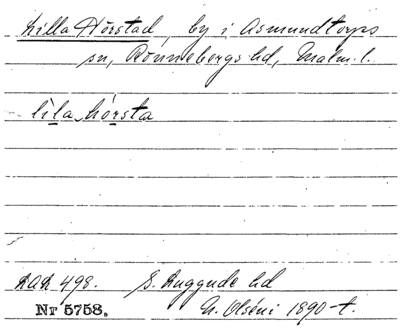 Lilla Hörstad, by i Asmundtorps
sn, Rönnebergs hd, Malm. l.
lìla hö́rsta
RAÄ 498. S. Luggude hd
Nr 5758. N. Olséni 1890-t.